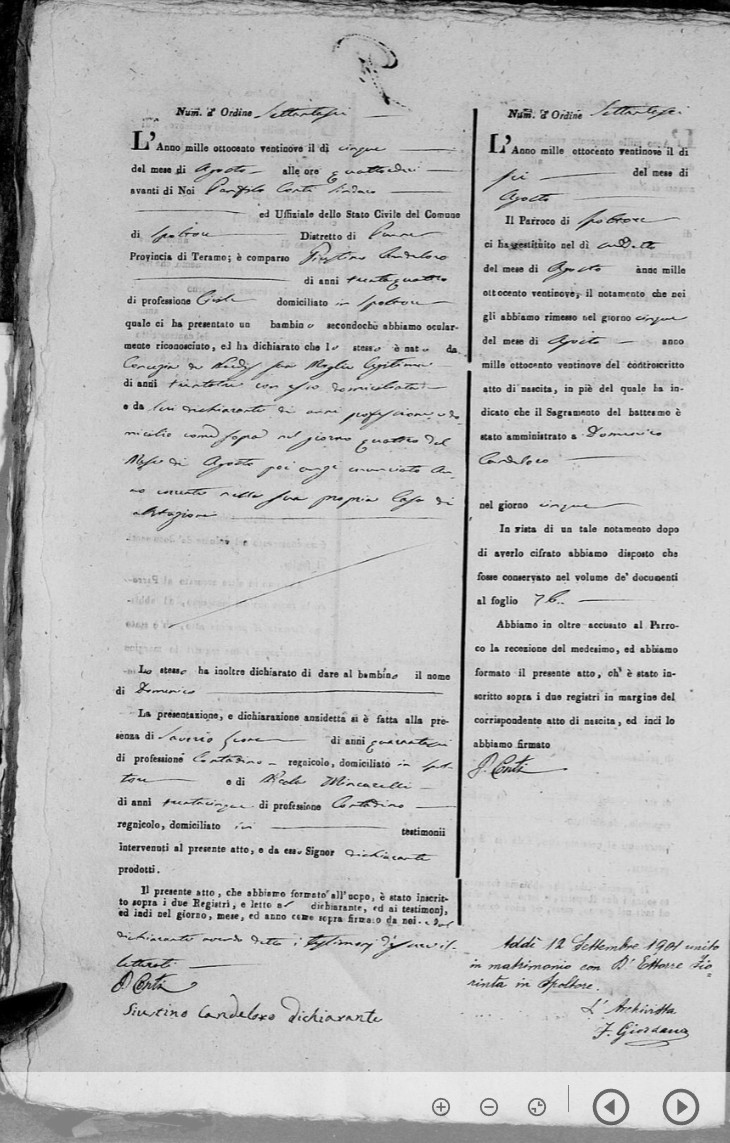 Num. d' Ordine Settantasei
L'Anno mille ottocento ventinove il dì cinque
del mese di Agosto alle ore quattordici
avanti di Noi Panfilo Conti Sindaco
ed Uffiziale dello Stato Civile del Comune
di Spoltore Distretto di Penne
Provincia di Teramo; è comparso Giustino Candeloro
di anni trentaquattro
di professione domiciliato in Spoltore
quale ci ha presentato un bambino secondochè abbiamo ocular-
mente riconosciuto, ed ha dichiarato che lo stesso è nato da
Concezia de sua Moglie legittima
di anni con esso domiciliata
e da lui dichiarante di anni professione e do-
micilio come sopra nel giorno quattro del
Mese di Agosto poi anzi enunciato an-
no corrente nella sua propria Casa di
abitazione
Lo stesso ha inoltre dichiarato di dare al bambino il nome
di Domenico
La presentazione, e dichiarazione anzidetta si è fatta alla pre-
senza di Saverio di anni quarantasei
di professione Contadino regnicolo, domiciliato in Spol-
tore e di Nicola
di anni trentacinque di professione Contadino
regnicolo, domiciliato ivi testimonii
intervenuti al presente atto, e da esso Signor dichiarante
prodotti.
Il presente atto, che abbiamo formato all'uopo, è stato inscrit-
to sopra i due Registri, e letto al dichiarante, ed ai testimonj,
ed indi nel giorno, mese, ed anno come sopra firmato da noi e dal
dichiarante avendo detto i testimonj d'essere il-
letterati
P. Conti
Giustino Candeloro dichiarante
Num. d' Ordine Settantasei
L'Anno mille ottocento ventinove il dì
sei del mese di
Agosto
Il Parroco di Spoltore
ci ha restituito nel dì
del mese di Agosto anno mille
ottocento ventinove, il notamento che noi
gli abbiamo rimesso nel giorno cinque
del mese di Agosto anno
mille ottocento ventinove del controscritto
atto di nascita, in piè del quale ha in-
dicato che il Sagramento del battesmo è
stato amministrato a Domenico
Candeloro
nel giorno cinque
In vista di un tale notamento dopo
di averlo cifrato abbiamo disposto che
fosse conservato nel volume de' documenti
al foglio 76..
Abbiamo in oltre accusato al Parro-
co la recezione del medesimo, ed abbiamo
formato il presente atto, ch' è stato in-
scritto sopra i due registri in margine del
corrispondente atto di nascita, ed inci lo
abbiamo firmato
P. Conti
Addì 12 Settembre 1901 unito
in matrimonio con D'Ettorre Fio=
rinta in Spoltore.
L' Archivista
F. Giordano